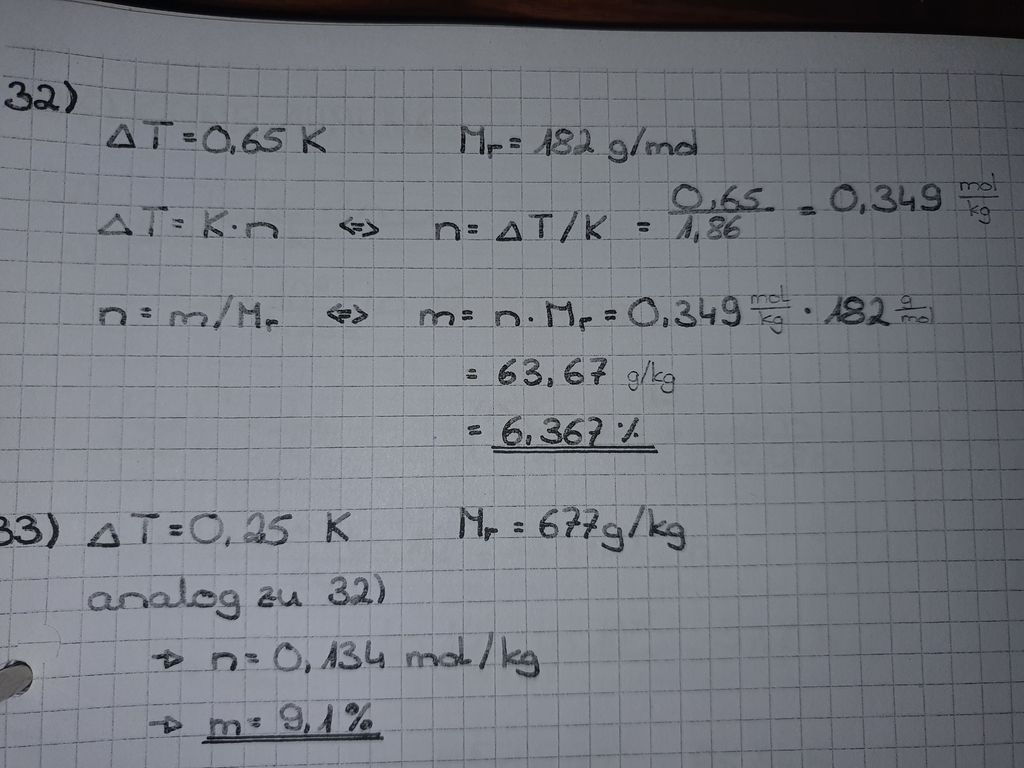 32)
ΔT=0,65 K Mr = 182 g/mol
ΔT= K·n <=> n= ΔT/K = 0,65/1,86 = 0,349 mol/kg
n= m/Mr <=> m= n·Mr = 0,349 mol/kg · 182 g/mol
= 63,67 g/kg
= 6,367 %
33) ΔT=0,25 K Mr = 677g/kg
analog zu 32)
→ n= 0,134 mol/kg
→ m= 9,1%